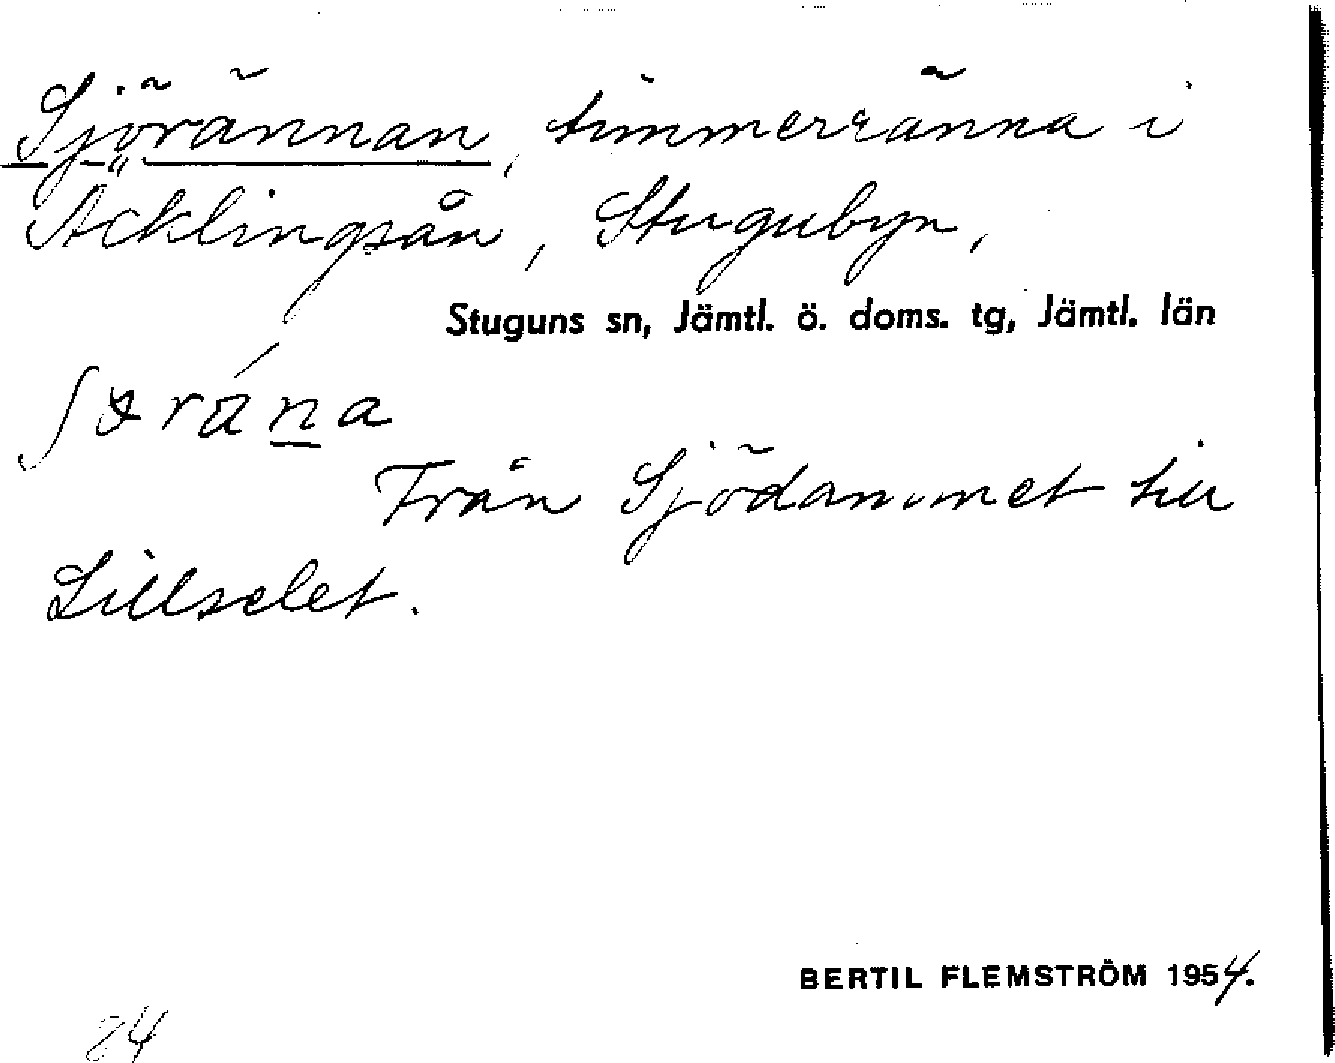 Sjörännan, timmerränna i
Äcklingsån, Stugubyn,
Stuguns sn, Jämtl. ö. doms. tg, Jämtl. län
Från Sjödammet till
Lillselet.
BERTIL FLEMSTRÖM 1954.
84